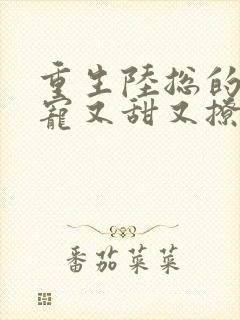 重生陸總的
寵又甜又撩
番茄菜菜